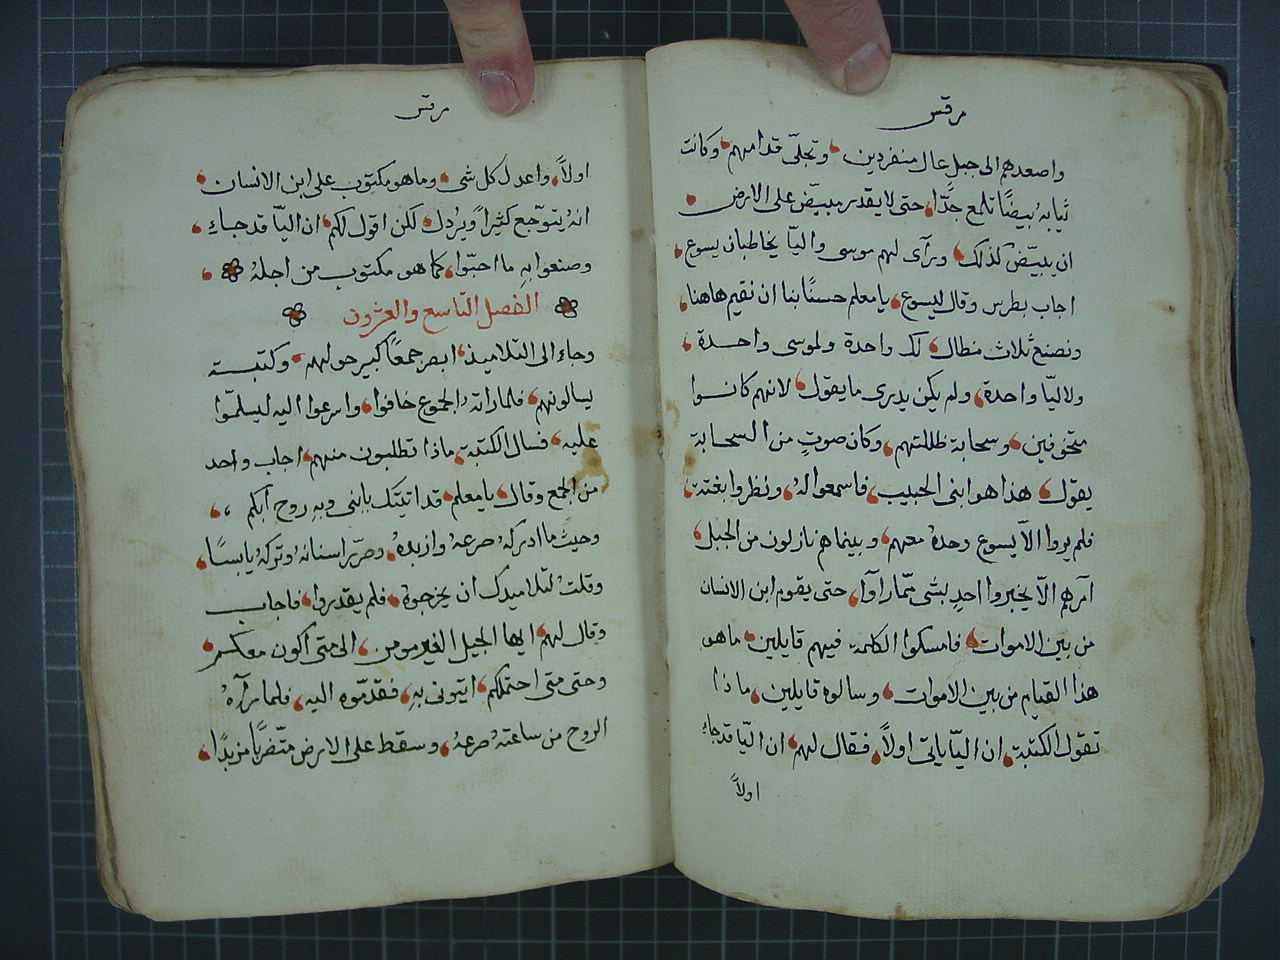 مرقس
واصعدهم الى جبل عال منفردين، وتجلّى قدامهم، وكانت
ثيابه بيضًا تلمع جدًّا، حتى لا يقدر مبيّض على الارض
ان يبيّض كذلك، وترآى لهم موسى واليّا يخاطبان يسوع،
اجاب بطرس وقال ليسوع، يا معلم حسنًا بنا ان نقيم هاهنا،
ونصنع ثلاث مظال، لك واحدة ولموسى واحدة،
ولاليّا واحدة، ولم يكن يدرى ما يقول، لانهم كانوا
متخوفين، وسحابة ظللتهم، وكان صوتٍ من السحابة
يقول، هذا هو ابنى الحبيب، فاسمعوا له، ونظروا بغتة،
فلم يروا الّا يسوع وحدهُ معهم، وبينما هم نازلون من الجبل،
آمرهم الّا يخبروا احدٍ بشى ممّا راوآ، حتى يقوم ابن الانسان
من بين الاموات، فامسكوا الكلمة فيهم قايلين، ما هو
هذا القيام من بين الاموات، وسالوه قايلين، ماذا
تقول الكتبة، ان اليّا ياتى اولاً، فقال لهم، ان اليّا قد جاء
اولاً
مرقس
اولاً، واعدل كل شى، وما هو مكتوب على ابن الانسان،
انهُ يتوّجع كثيراً ويُردل، لكن اقول لكم، ان اليّا قد جاء،
وصنعوا به ما احبّوا، كما هو مكتوب من اجلهُ،
الفصل التاسع والعشرون
وجاء الى التلاميذ، ابصر جمعًا كبير حولهم، وكتبة
يسالونهم، فلما راتهُ الجموع خافوا، واسرعوا اليه ليسلمّوا
عليه، فسال الكتبة، ماذا تطلبون منهم، اجاب واحد
من الجمع وقال، يا معلم، قد اتيتك بابنى وبهِ روح ابكم،
وحيث ما ادركهُ صرعهُ وازبدهُ، وصرّر اسنانهُ وتركهُ يابسًا،
وقلتُ لتلاميدك ان يخرجوهُ، فلم يقدروا، فاجاب
وقال لهم، ايها الجيل الغير مومن، الى متى اكون معكم،
وحتى متى احتملكم، ايتونى بهِ، فقدّموه اليه، فلما رآهُ
الروح من ساعتهُ صرعهُ، وسقط على الارض متّضربًا مزبدًا،